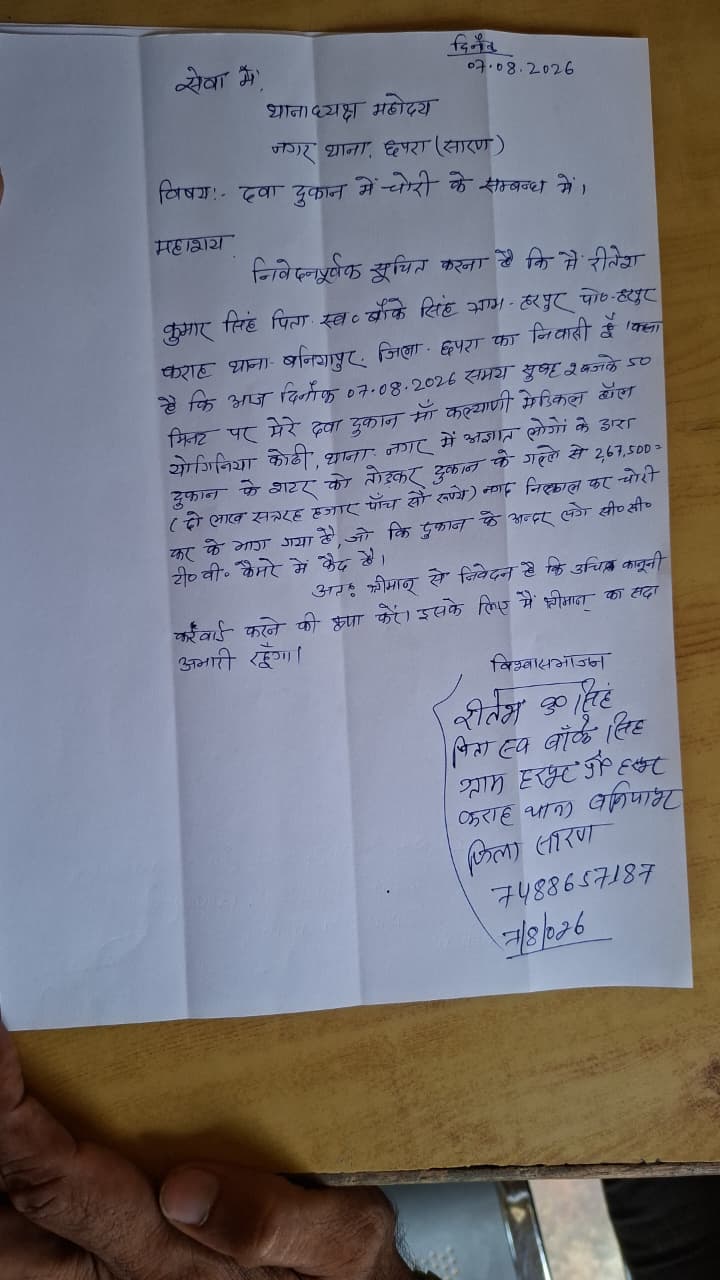 दिनाँक
07.08.2026
सेवा में,
थानाध्यक्ष महोदय
नगर थाना, छपरा (सारण)
विषय:- दवा दुकान में चोरी के सम्बन्ध में।
महाशय,
निवेदनपूर्वक सूचित करना है कि मैं रीतेश
कुमार सिंह पिता- स्व० बाँके सिंह ग्राम- हरपुर पो०-हरपुर
कराह थाना- बनियापुर, जिला- छपरा का निवासी हूँ।
है कि आज दिनाँक 07.08.2026 समय सुबह 2 बजके 50
मिनट पर मेरे दवा दुकान माँ कल्याणी मेडिकल हॉल
योगिनिया कोठी, थाना- नगर में अज्ञात लोगों के द्वारा
दुकान के शटर को तोड़कर दुकान के गल्ले से 2,67,500=
(दो लाख सत्तरह हजार पाँच सौ रूपये) नगद निकाल कर चोरी
कर के भाग गया है, जो कि दुकान के अन्दर लगे सी० सी०
टी० वी० कैमरे में कैद है।
अतः श्रीमान् से निवेदन है कि उचित कानूनी
करवाई करने की कृपा करें। इसके लिए मैं श्रीमान् का सदा
अभारी रहूँगा।
विश्वासभाजन
रीतेश कु० सिंह
पिता स्व बाँके सिंह
ग्राम हरपुर पो० हरपुर
कराह थाना बनियापुर
जिला सारण
7488657187
7/8/026